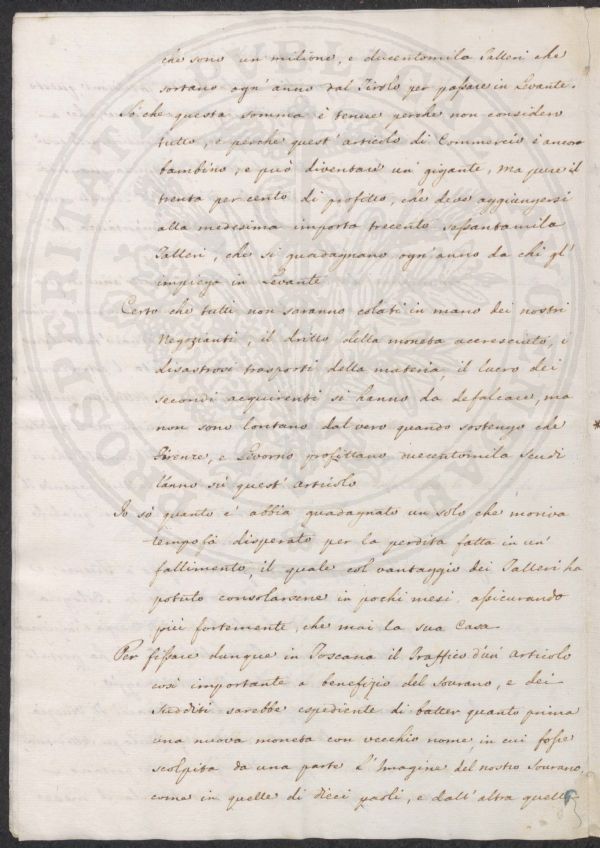 che sono un' milione, e ducentomila Talleri che
sortano ogn' anno dal Tirolo per passare in Levante.
Sò che questa somma è tenue, perche non considero
tutto, e perche quest' articolo di Commercio è ancora
bambino, e può diventare un' gigante, ma pure il
trenta per cento di profitto, che deve aggiungersi
alla medesima importa trecento sessantamila
Talleri, che si guadagnano ogn' anno da chi gl'
impiega in Levante
Certo che tutti non saranno colati in mano dei nostri
Negozianti, il dritto della moneta accresciuto, i
disastrosi trasporti della materia, il lucro dei
secondi acquirenti si hanno da defalcare, ma
non sono lontano dal vero quando sostengo che
Firenze, e Livorno profittano duecentomila Scudi
l'anno sù quest' articolo
Io sò quanto v' abbia guadagnato un solo che moriva
tempo fà disperato per la perdita fatta in un'
fallimento, il quale col vantaggio dei Talleri ha
potuto consolarsene in pochi mesi, assicurando
più fortemente, che mai la sua Casa
Per fissare dunque in Toscana il Traffico d'un' articolo
così importante a benefizio del Sovrano, e dei
Sudditi sarebbe espediente di batter quanto prima
una nuova moneta con vecchio nome, in cui fosse
scolpita da una parte l'Imagine del nostro Sovrano,
come in quelle di dieci paoli, e dall' altra quell
PROSPERITATI PVBLICAE PROVEHENDAE